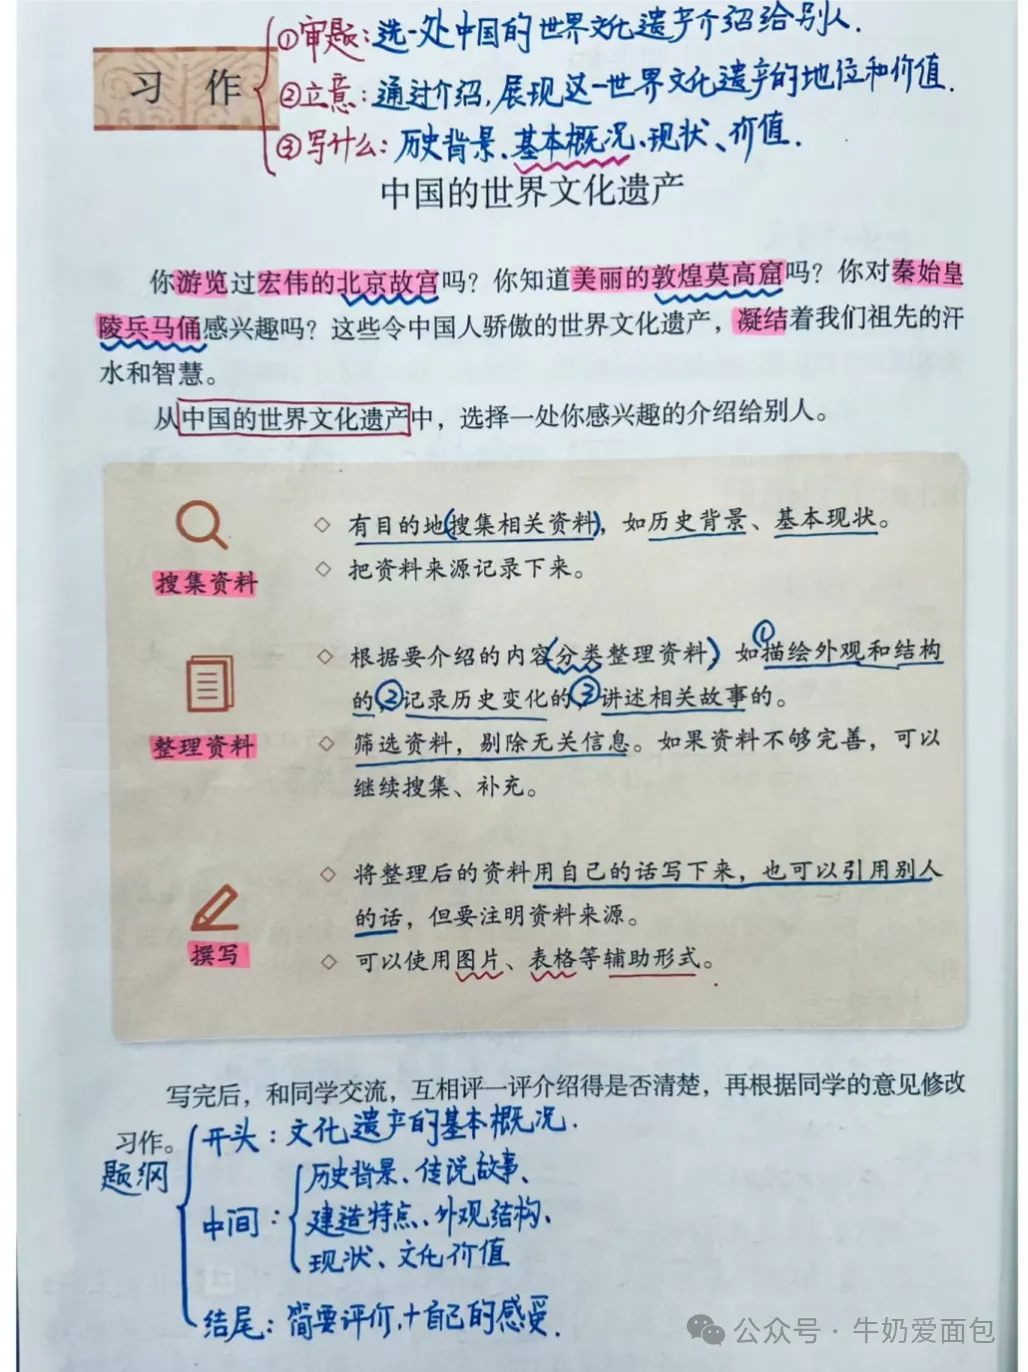 ①审题：选一处中国的世界文化遗产介绍给别人.
习 作
②立意：通过介绍，展现这一世界文化遗产的地位和价值.
③写什么：历史背景、基本概况、现状、价值.
中国的世界文化遗产
你游览过宏伟的北京故宫吗？你知道美丽的敦煌莫高窟吗？你对秦始皇
陵兵马俑感兴趣吗？这些令中国人骄傲的世界文化遗产，凝结着我们祖先的汗
水和智慧。
从中国的世界文化遗产中，选择一处你感兴趣的介绍给别人。
◇ 有目的地(搜集相关资料)，如历史背景、基本现状。
搜集资料
◇ 把资料来源记录下来。
◇ 根据要介绍的内容(分类整理资料)，如①描绘外观和结构
的，②记录历史变化的，③讲述相关故事的。
整理资料
◇ 筛选资料，剔除无关信息。如果资料不够完善，可以
继续搜集、补充。
◇ 将整理后的资料用自己的话写下来，也可以引用别人
的话，但要注明资料来源。
撰写
◇ 可以使用图片、表格等辅助形式。
写完后，和同学交流，互相评一评介绍得是否清楚，再根据同学的意见修改
习作。
题纲
开头：文化遗产的基本概况.
中间：
历史背景、传说故事、
建造特点、外观结构、
现状、文化价值
结尾：简要评价，+自己的感受.
公众号·牛奶爱面包